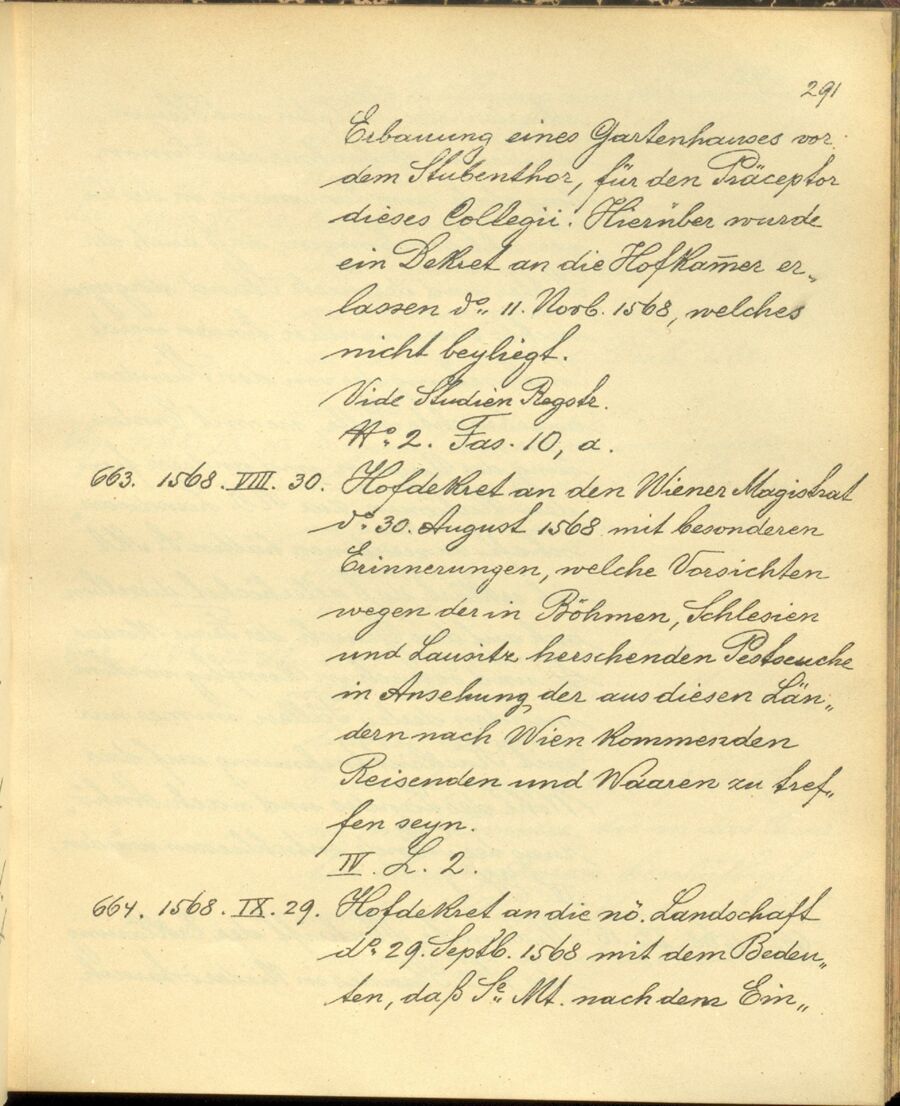 291
Erbauung eines Gartenhauses vor
dem Stubenthor, für den Präceptor
dieses Collegii. Hierüber wurde
ein Dekret an die Hofkam̅er er„
lassen do„ 11. Novb. 1568, welches
nicht beyliegt.
Vide Studien Regstr.
No. 2. Fas. 10, a.
663. 1568. VIII. 30. Hofdekret an den Wiener Magistrat
do. 30. August 1568 mit besonderen
Erinnerungen, welche Vorsichten
wegen der in Böhmen, Schlesien
und Lausitz herschenden Pestseuche
in Ansehung der aus diesen Län„
dern nach Wien kommenden
Reisenden und Waaren zu tref„
fen seyn.
IV. L. 2.
664. 1568. IX. 29. Hofdekret an die nö. Landschaft
do. 29. Septb. 1568 mit dem Bedeu„
ten, daß Se„ Mt. nach dem Ein„